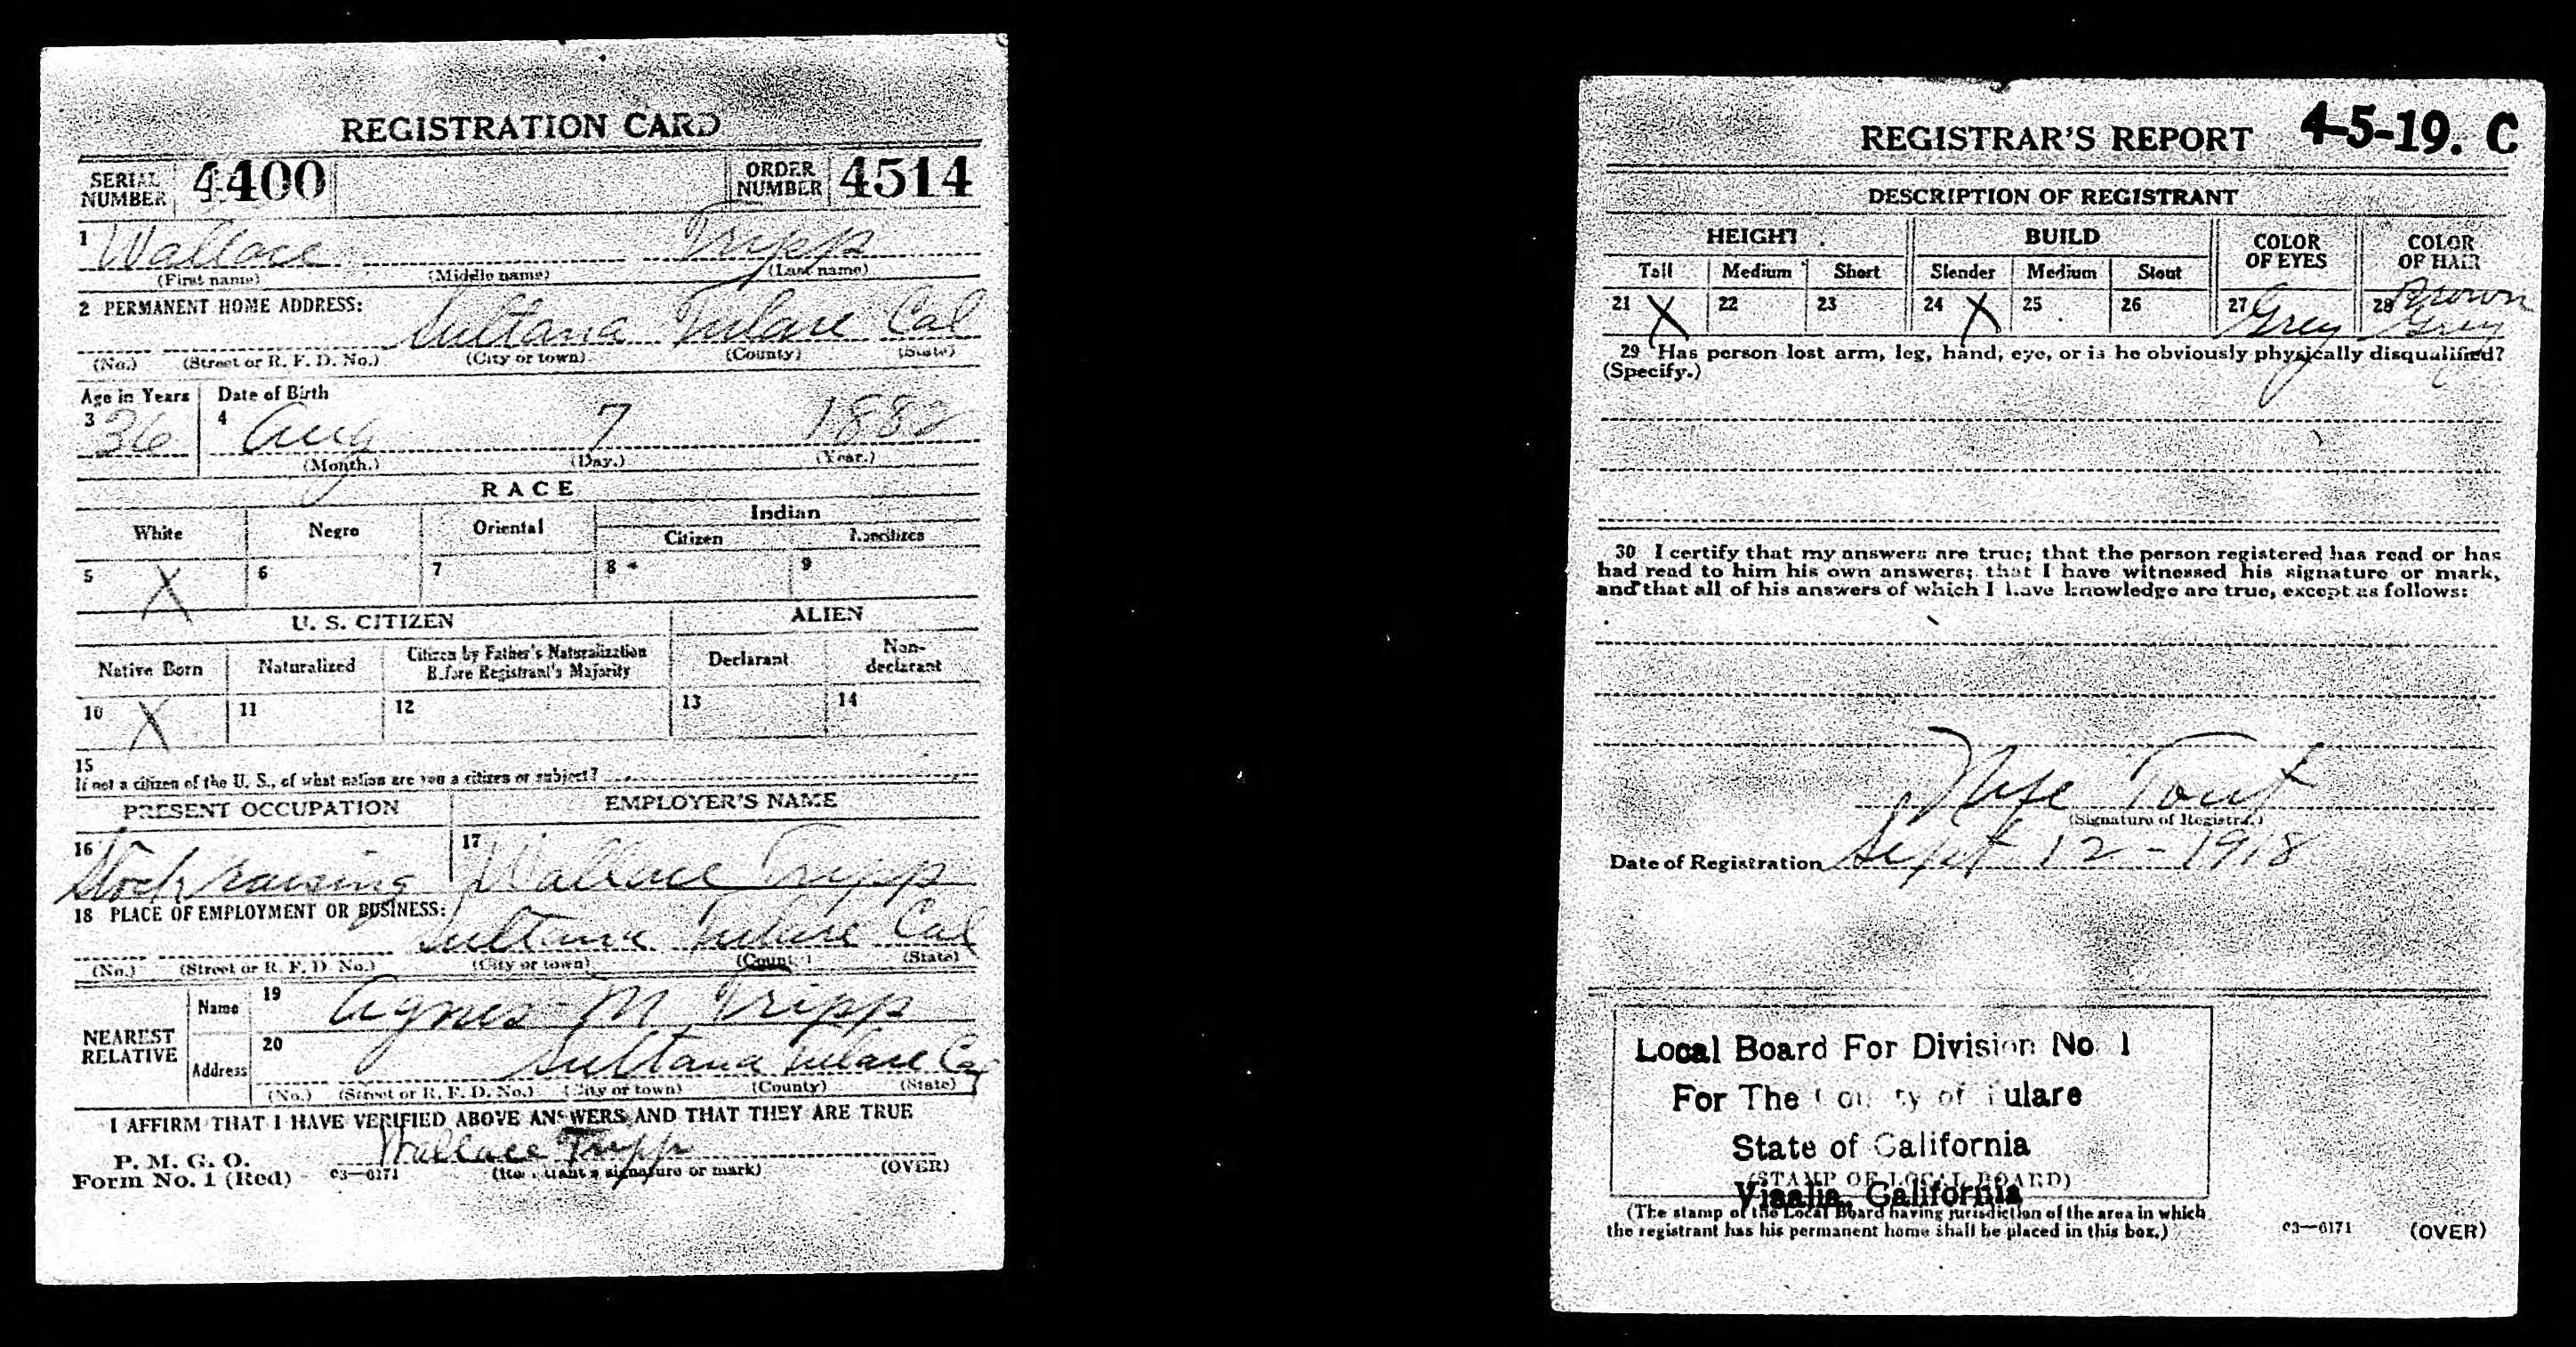 REGISTRATION CARD
SERIAL NUMBER 4400 ORDER NUMBER 4514
1 Wallace Tripp
(First name) (Middle name) (Last name)
2 PERMANENT HOME ADDRESS:
Sultana Tulare Cal
(No.) (Street or R. F. D. No.) (City or town) (County) (State)
Age in Years Date of Birth
3 36 4 Aug 7 1882
(Month.) (Day.) (Year.)
RACE
White Negro Oriental Indian
Citizen Noncitizen
5 X 6 7 8 9
U. S. CITIZEN ALIEN
Native Born Naturalized Citizen by Father's Naturalization Before Registrant's Majority Declarant Non-declarant
10 X 11 12 13 14
15
If not a citizen of the U. S., of what nation are you a citizen or subject?
PRESENT OCCUPATION EMPLOYER'S NAME
16 Stock raising 17 Wallace Tripp
18 PLACE OF EMPLOYMENT OR BUSINESS:
Sultana Tulare Cal
(No.) (Street or R. F. D. No.) (City or town) (County) (State)
NEAREST RELATIVE
Name 19 Agnes M Tripp
Address 20 Sultana Tulare Cal
(No.) (Street or R. F. D. No.) (City or town) (County) (State)
I AFFIRM THAT I HAVE VERIFIED ABOVE ANSWERS AND THAT THEY ARE TRUE
P. M. G. O.
Form No. 1 (Red) 03—6171 Wallace Tripp
(Registrant's signature or mark) (OVER)
REGISTRAR'S REPORT 4-5-19. C
DESCRIPTION OF REGISTRANT
HEIGHT BUILD COLOR OF EYES COLOR OF HAIR
Tall Medium Short Slender Medium Stout
21 X 22 23 24 X 25 26 27 Grey 28 Brown Grey
29 Has person lost arm, leg, hand, eye, or is he obviously physically disqualified?
(Specify.)
30 I certify that my answers are true; that the person registered has read or has
had read to him his own answers; that I have witnessed his signature or mark,
and that all of his answers of which I have knowledge are true, except as follows:
Tout
(Signature of Registrar)
Date of Registration Sept 12 - 1918
Local Board For Division No. 1
For The County of Tulare
State of California
(STAMP OF LOCAL BOARD)
Visalia, California
(The stamp of the Local Board having jurisdiction of the area in which
the registrant has his permanent home shall be placed in this box.)
03—6171 (OVER)